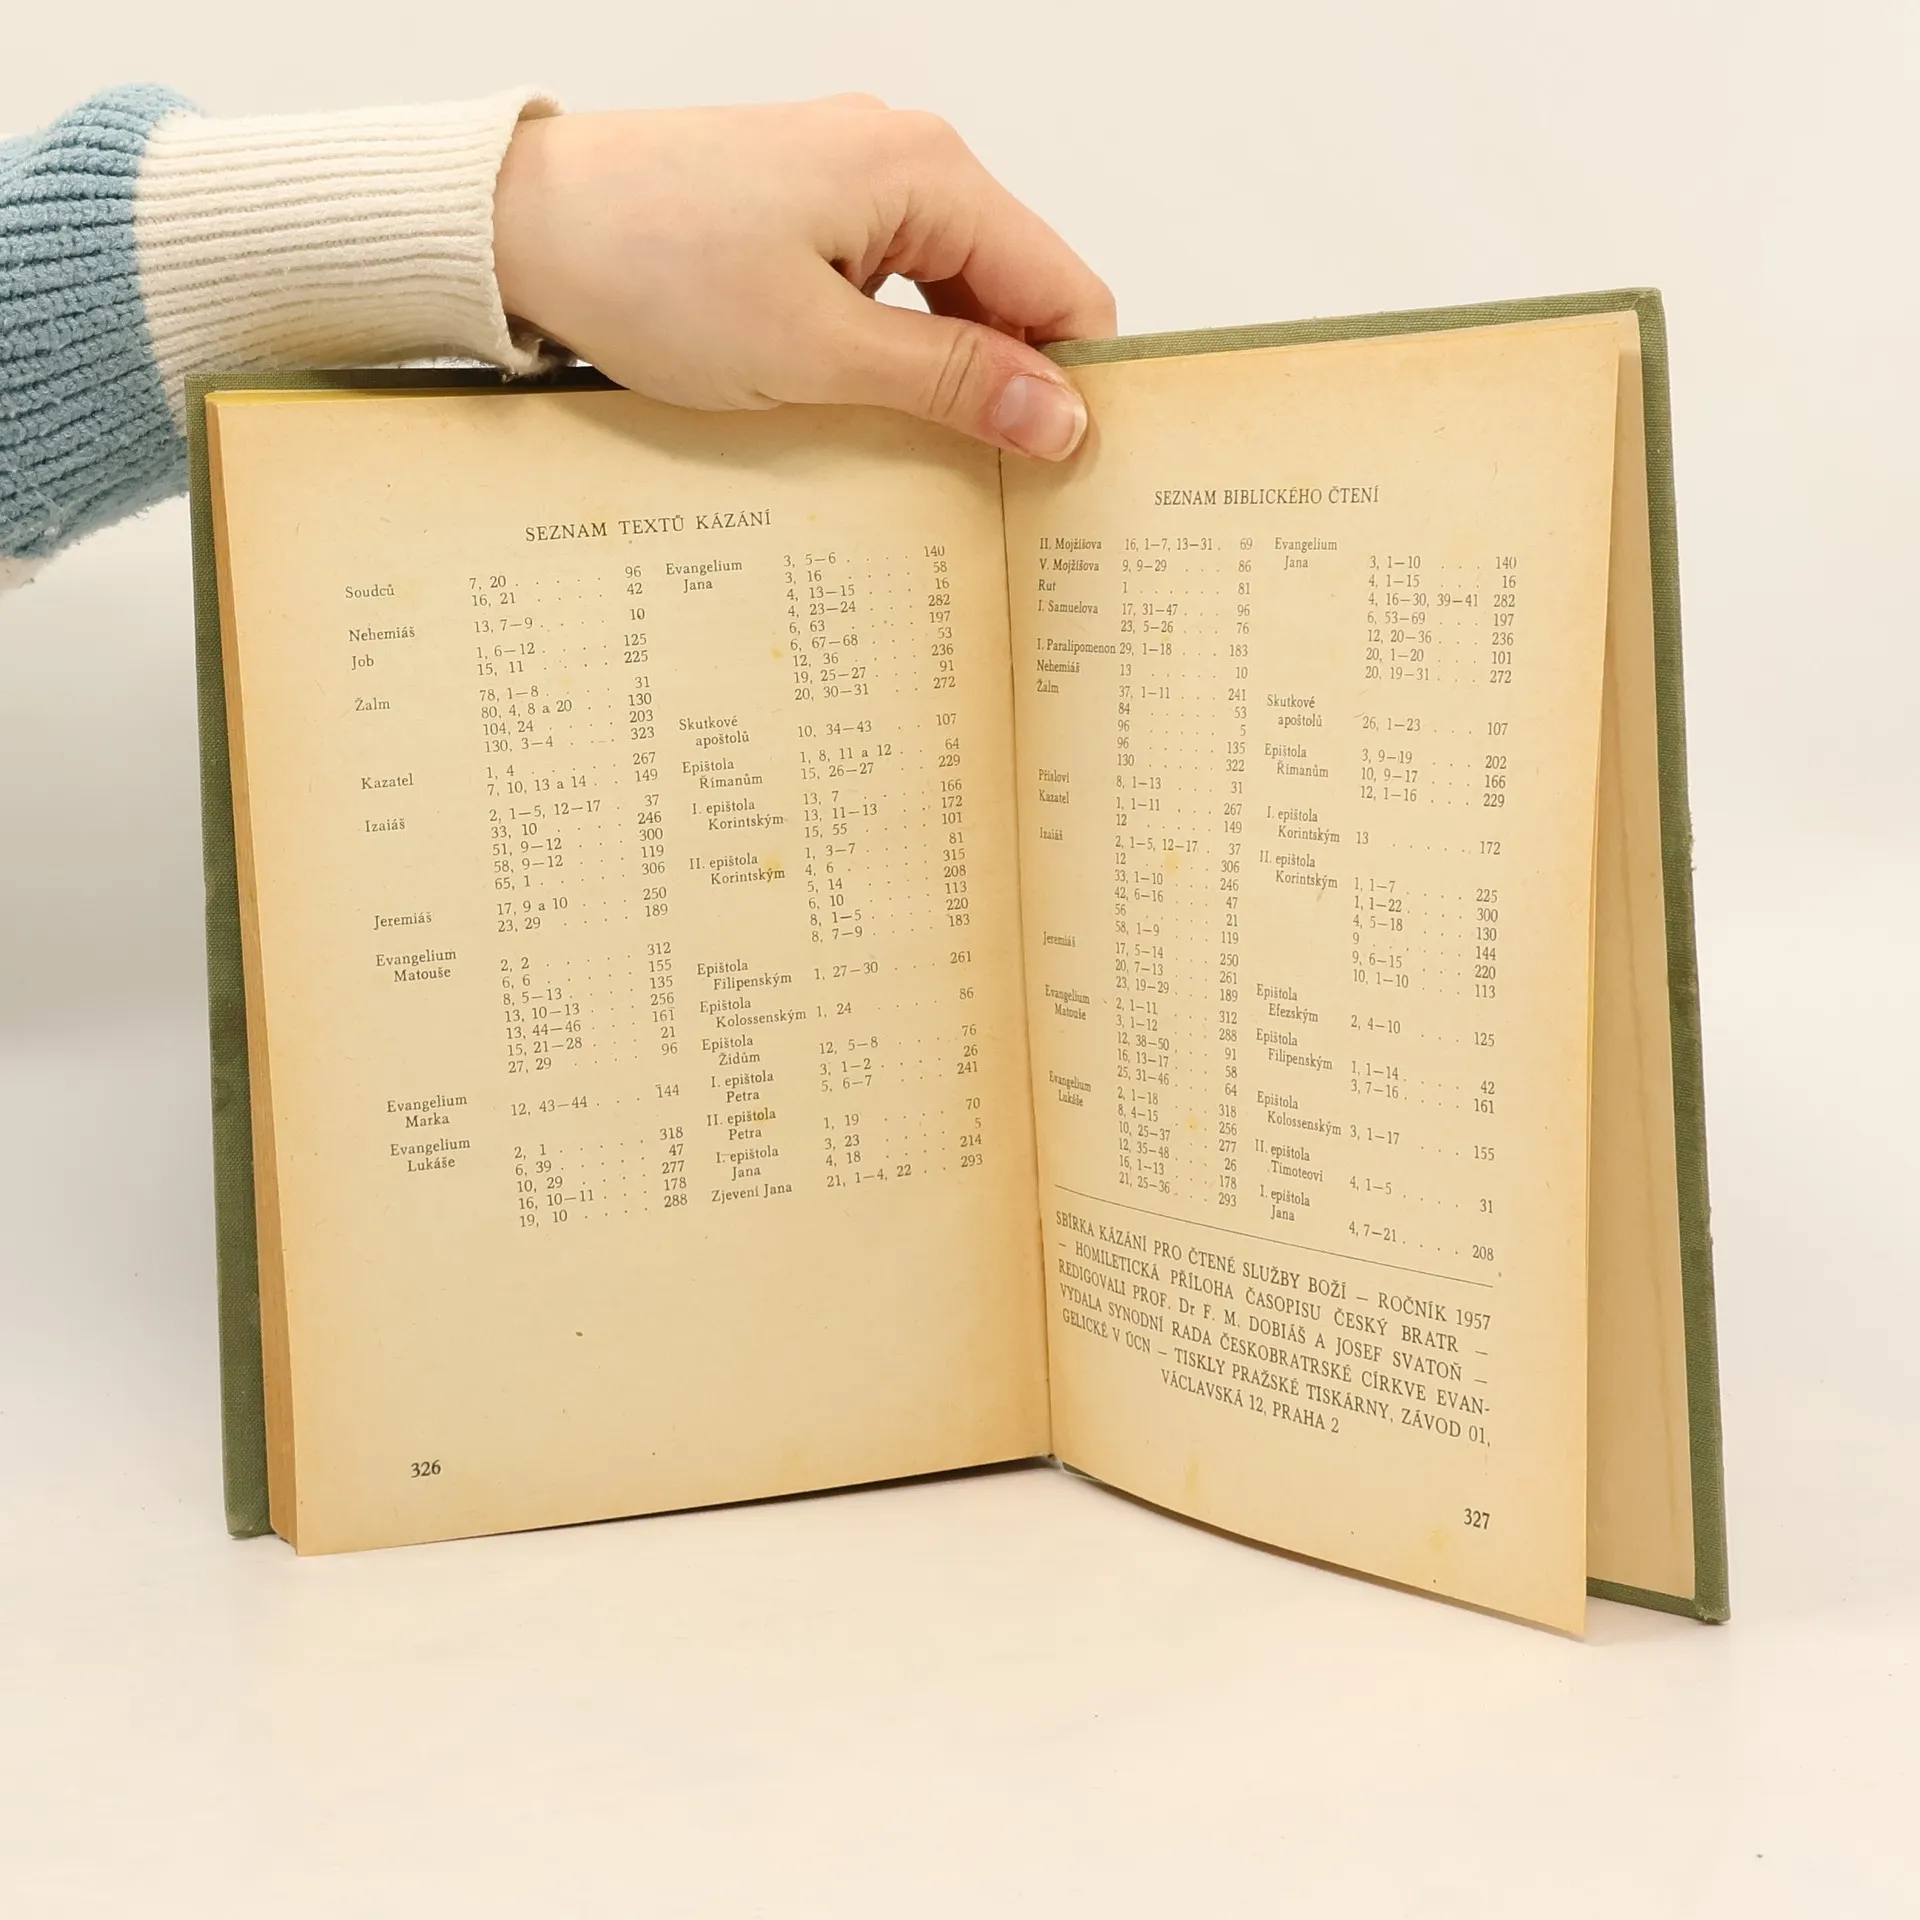 SEZNAM TEXTŮ KÁZÁNÍ
Soudců 7, 20 . . . . . 96
16, 21 . . . . 42
Nehemiáš 13, 7—9 . . . . 10
Job 1, 6—12 . . . . 125
15, 11 . . . . 225
Žalm 78, 1—8 . . . . 31
80, 4, 8 a 20 . . 130
104, 24 . . . . 203
130, 3—4 . . . 323
Kazatel 1, 4 . . . . . 267
7, 10, 13 a 14 . . 149
Izaiáš 2, 1—5, 12—17 . 37
33, 10 . . . . 246
51, 9—12 . . . 300
58, 9—12 . . . 119
65, 1 . . . . . 306
Jeremiáš 17, 9 a 10 . . . 250
23, 29 . . . . 189
Evangelium
Matouše 2, 2 . . . . . 312
6, 6 . . . . . 155
8, 5—13 . . . . 135
13, 10—13 . . . 256
13, 44—46 . . . 161
15, 21—28 . . . 21
27, 29 . . . . 96
Evangelium
Marka 12, 43—44 . . . 144
Evangelium
Lukáše 2, 1 . . . . . 318
6, 39 . . . . . 47
10, 29 . . . . 277
16, 10—11 . . . 178
19, 10 . . . . 288
Evangelium
Jana 3, 5—6 . . . . 140
3, 16 . . . . 58
4, 13—15 . . . 16
4, 23—24 . . . 282
6, 63 . . . . 197
6, 67—68 . . . 53
12, 36 . . . . 236
19, 25—27 . . . 91
20, 30—31 . . 272
Skutkové
apoštolů 10, 34—43 . . 107
Epištola
Římanům 1, 8, 11 a 12 . . 64
15, 26—27 . . 229
I. epištola
Korintským 13, 7 . . . . 166
13, 11—13 . . . 172
15, 55 . . . . 101
II. epištola
Korintským 1, 3—7 . . . . 81
4, 6 . . . . 315
5, 14 . . . . 208
6, 10 . . . . 113
8, 1—5 . . . . 220
8, 7—9 . . . . 183
Epištola
Filipenským 1, 27—30 . . . 261
Epištola
Kolossenským 1, 24 . . . . 86
Epištola
Židům 12, 5—8 . . . 76
I. epištola
Petra 3, 1—2 . . . . 26
5, 6—7 . . . . 241
II. epištola
Petra 1, 19 . . . . 70
I. epištola
Jana 3, 23 . . . . 5
4, 18 . . . . 214
Zjevení Jana 21, 1—4, 22 . . 293
326
SEZNAM BIBLICKÉHO ČTENÍ
II. Mojžíšova 16, 1—7, 13—31 . 69
V. Mojžíšova 9, 9—29 . . . 86
Rut 1 . . . . . . 81
I. Samuelova 17, 31—47 . . . 96
23, 5—26 . . . 76
I. Paralipomenon 29, 1—18 . . . 183
Nehemiáš 13 . . . . . 10
Žalm 37, 1—11 . . . 241
84 . . . . . 53
96 . . . . . 5
96 . . . . . 135
130 . . . . . 322
Přísloví 8, 1—13 . . . 31
Kazatel 1, 1—11 . . . 267
12 . . . . . 149
Izaiáš 2, 1—5, 12—17 . 37
12 . . . . . 306
33, 1—10 . . . 246
42, 6—16 . . . 47
56 . . . . . 21
58, 1—9 . . . 119
Jeremiáš 17, 5—14 . . . 250
20, 7—13 . . . 261
23, 19—29 . . . 189
Evangelium
Matouše 2, 1—11 . . . 312
3, 1—12 . . . 288
12, 38—50 . . . 91
16, 13—17 . . . 58
25, 31—46 . . . 64
Evangelium
Lukáše 2, 1—18 . . . 318
8, 4—15 . . . 256
10, 25—37 . . . 277
12, 35—48 . . . 26
16, 1—13 . . . 178
21, 25—36 . . . 293
Evangelium
Jana 3, 1—10 . . . 140
4, 1—15 . . . 16
4, 16—30, 39—41 282
6, 53—69 . . . 197
12, 20—36 . . . 236
20, 1—20 . . . 101
20, 19—31 . . . 272
Skutkové
apoštolů 26, 1—23 . . . 107
Epištola
Římanům 3, 9—19 . . . 202
10, 9—17 . . . 166
12, 1—16 . . . 229
I. epištola
Korintským 13 . . . . . 172
II. epištola
Korintským 1, 1—7 . . . . 225
1, 1—22 . . . . 300
4, 5—18 . . . 130
9 . . . . . 144
9, 6—15 . . . 220
10, 1—10 . . . 113
Epištola
Efezským 2, 4—10 . . . 125
Epištola
Filipenským 1, 1—14 . . . . 42
3, 7—16 . . . . 161
Epištola
Kolossenským 3, 1—17 . . . 155
II. epištola
Timoteovi 4, 1—5 . . . . 31
I. epištola
Jana 4, 7—21 . . . . 208
SBÍRKA KÁZÁNÍ PRO ČTENÉ SLUŽBY BOŽÍ — ROČNÍK 1957
— HOMILETICKÁ PŘÍLOHA ČASOPISU ČESKÝ BRATR —
REDIGOVALI PROF. Dr F. M. DOBIÁŠ A JOSEF SVATOŇ —
VYDALA SYNODNÍ RADA ČESKOBRATRSKÉ CÍRKVE EVAN-
GELICKÉ V ÚCN — TISKLY PRAŽSKÉ TISKÁRNY, ZÁVOD 01,
VÁCLAVSKÁ 12, PRAHA 2
327